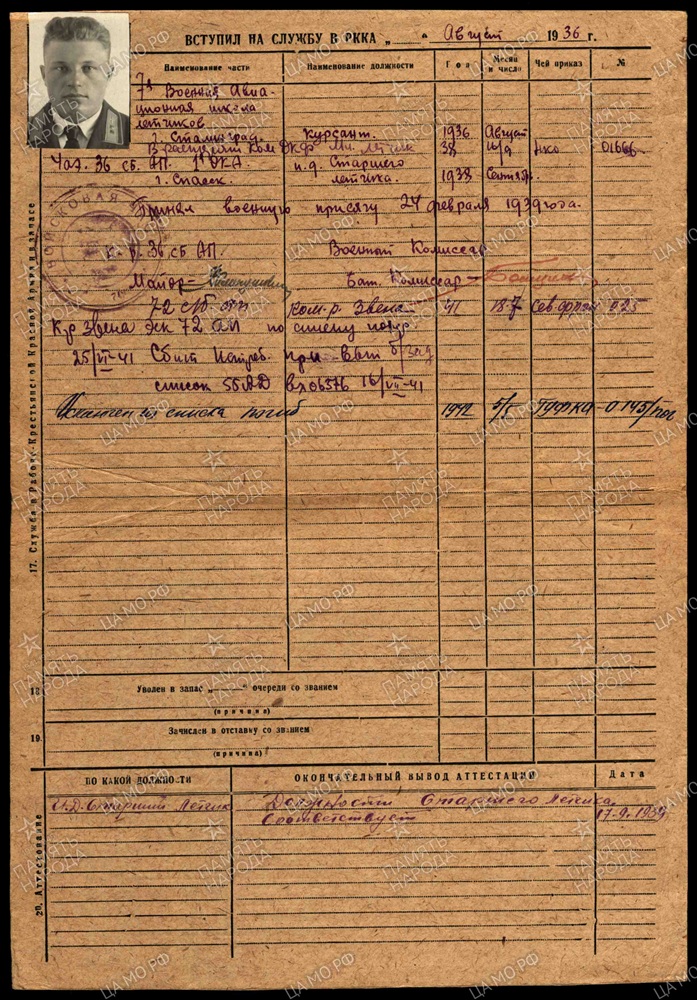 ВСТУПИЛ НА СЛУЖБУ В РККА „ “ Август 1936 г.
Наименование части Наименование должности Год Месяц и число Чей приказ №
7я Военная Авиа-
ционная школа
летчиков
г. Сталинград. Курсант. 1936 Август
В распоряж Ком ОКДФ Мл. летчик 38 НКО
Чал. 36 сб. АП. 1 ОКА. и.д. Старшего
г. Спасск. летчика. 1938 Сентябрь
Принял военную присягу 24 февраля 1939 года.
К-р. 36 сб АП. Военный Комиссар
Майор- Бат. Комиссар-
72 сб. ап Ком-р. Звена 41 18-7 Сев-фрон 025
К-р Звена 72 АП по
25/VI-41 Сбит Истреб. при
список 55 АД вх 06376 16/VII-41
Исключен из списка погиб 1942 5/5 ГУФКА -0145/пог
17. Служба в Рабоче-Крестьянской Красной Армии и запасе
ВОЙСКОВАЯ
18 Уволен в запас „ “ очереди со званием
(причина)
19. Зачислен в отставку со званием
(причина)
20. Аттестование
ПО КАКОЙ ДОЛЖНОСТИ ОКОНЧАТЕЛЬНЫЙ ВЫВОД АТТЕСТАЦИИ Дата
И.Д. Старший Летчик Должности Старшего Летчика
Соответствует 17-9-1939
ЦАМО.РФ
ПАМЯТЬ НАРОДА